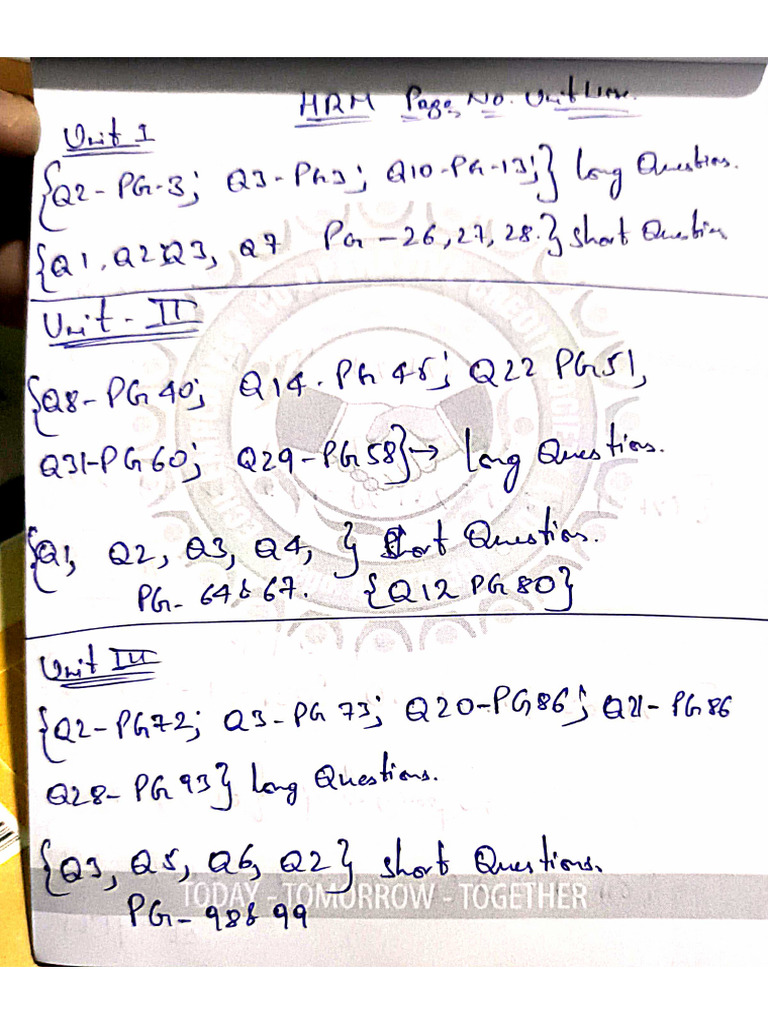 HRM Page No. Unit Wise.
Unit I
{Q2-PG-3; Q3-PG3; Q10-PG-13;} Long Questions.
{Q1, Q2, Q3, Q7 PG-26,27,28.} Short Question
Unit-II
{Q8-PG40; Q14-PG 45; Q22 PG51,
Q31-PG60; Q29-PG58}→ Long Questions.
{Q1, Q2, Q3, Q4, } Short Question.
PG-64&67. {Q12 PG80}
Unit III
{Q2-PG72; Q3-PG73; Q20-PG86; Q21-PG86
Q28-PG93} Long Questions.
{Q3, Q5, Q6, Q2} Short Questions.
TODAY - TOMORROW - TOGETHER
PG-98&99